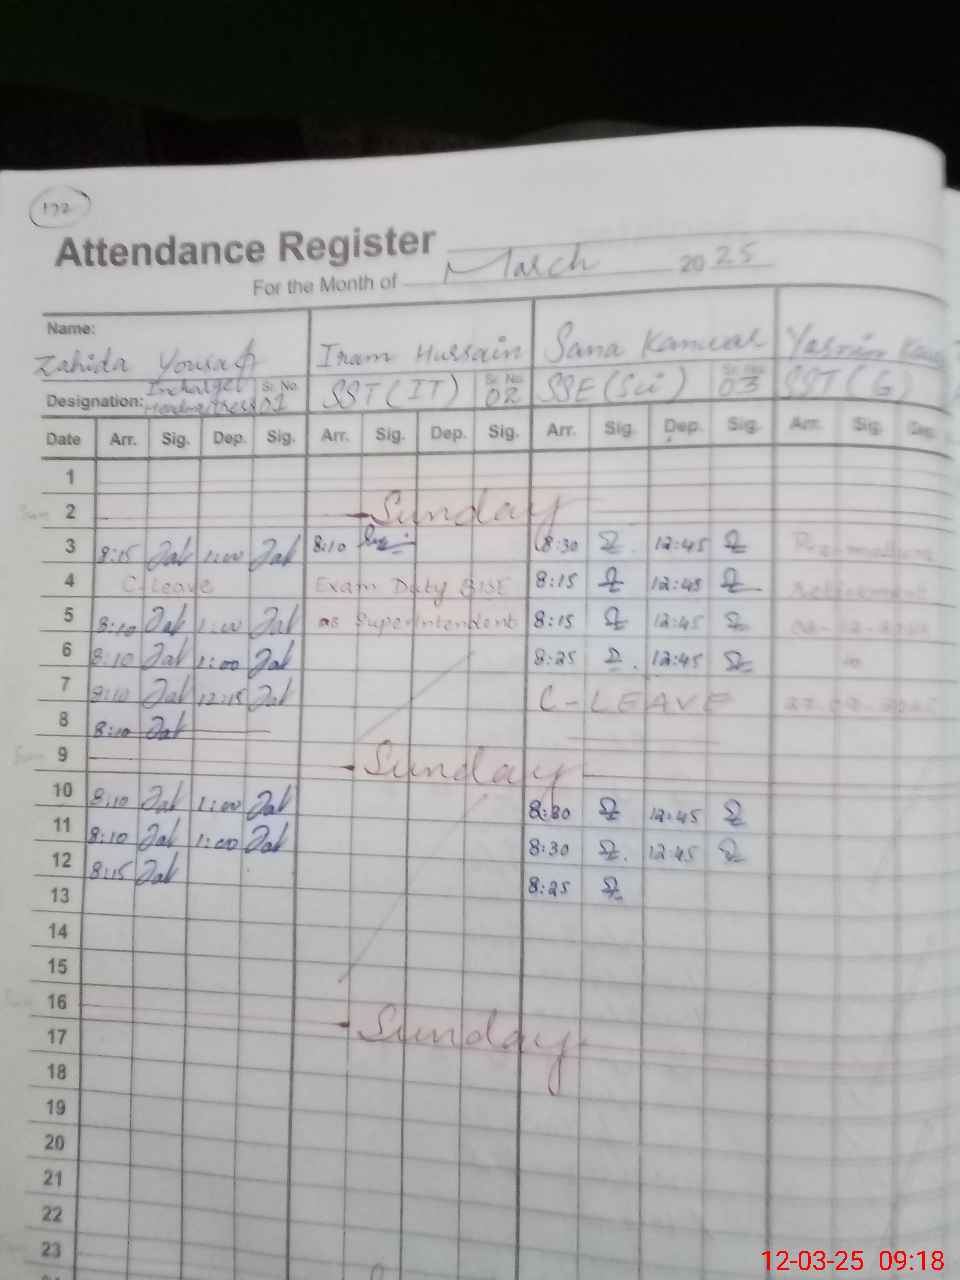 172
Attendance Register
For the Month of March 2025
Name:
Zahida Yousaf Iram Hussain Sana Kanwal Yasmin
Designation: Incharge Headmistress Sr. No. 01 SST (IT) Sr. No. 02 SSE (Sci) Sr. No. 03 SST (G)
Date Arr. Sig. Dep. Sig. Arr. Sig. Dep. Sig. Arr. Sig. Dep. Sig. Arr. Sig. Dep.
1
2 Sunday
3 8:15 1:00 8:10 8:30 12:45
4 C-Leave Exam Duty BISE 8:15 12:45 Retirement
5 8:10 1:00 as Superintendent 8:15 12:45
6 8:10 1:00 8:25 12:45 to
7 8:10 12:15 C-LEAVE
8 8:10
9 Sunday
10 8:10 1:00 8:30 12:45
11 8:10 1:00 8:30 12:45
12 8:15 8:25
13
14
15
16 Sunday
17
18
19
20
21
22
23
12-03-25 09:18